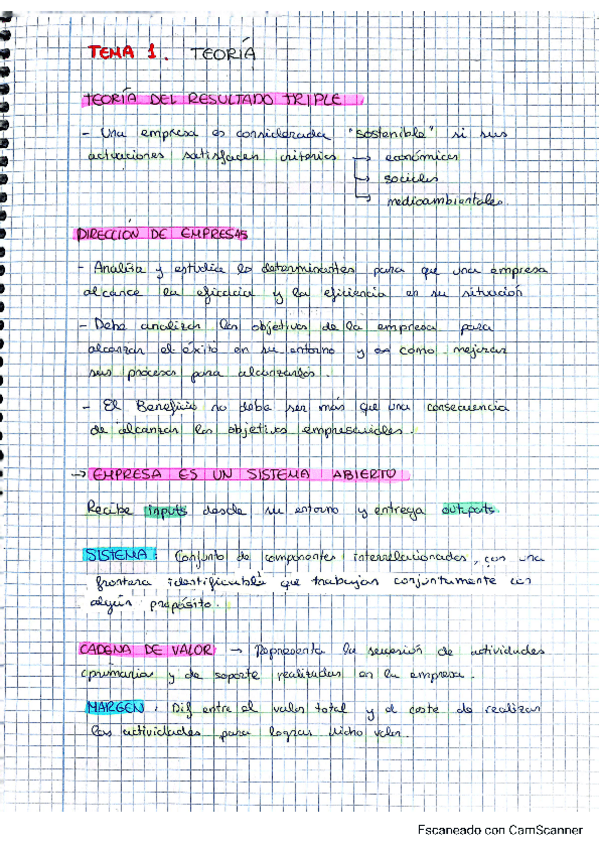 TEMA 1. TEORÍA
TEORÍA DEL RESULTADO TRIPLE
- Una empresa es considerada "sostenible" si sus
actuaciones satisfacen criterios → económicos
→ sociales
→ medioambientales.
DIRECCIÓN DE EMPRESAS
- Analiza y estudia los determinantes para que una empresa
alcance la eficacia y la eficiencia en su situación
- Debe analizar los objetivos de la empresa para
alcanzar el éxito en su entorno y en como mejorar
sus procesos para alcanzarlos.
- El Beneficio no debe ser más que una consecuencia
de alcanzar los objetivos empresariales.
→ EMPRESA ES UN SISTEMA ABIERTO
Recibe inputs desde su entorno y entrega outputs.
SISTEMA: Conjunto de componentes interrelacionados, con una
frontera identificable que trabajan conjuntamente con
algún propósito.
CADENA DE VALOR → Representa la sucesión de actividades
primarias y de soporte realizadas en la empresa.
MARGEN: Dif entre el valor total y el coste de realizar
las actividades para lograr dicho valor.
Escaneado con CamScanner